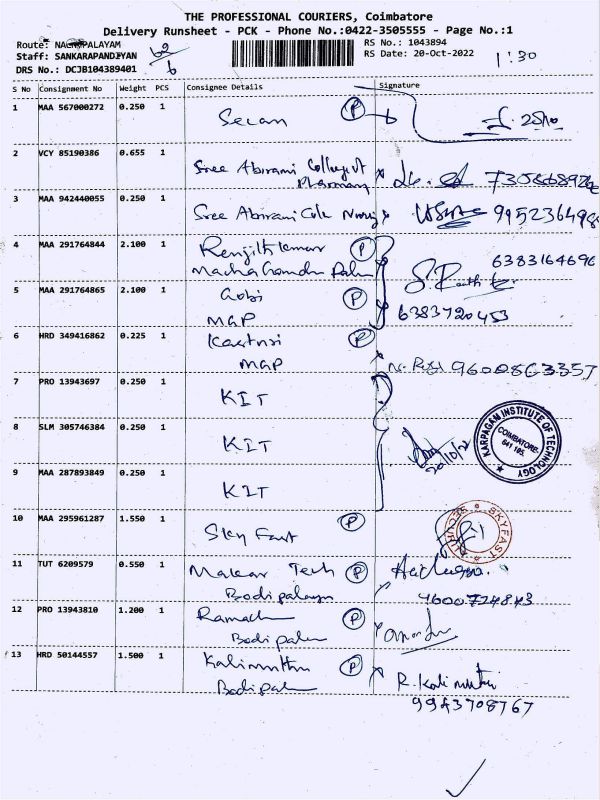 THE PROFESSIONAL COURIERS, Coimbatore
Delivery Runsheet - PCK - Phone No.:0422-3505555 - Page No.:1
Route: NAGAPALAYAM
Staff: SANKARAPANDIYAN
DRS No.: DCJB104389401
RS No.: 1043894
RS Date: 20-Oct-2022
1:30
S No Consignment No Weight PCS Consignee Details Signature
1 MAA 567000272 0.250 1 Selan P
2 VCY 85190386 0.655 1 Sree Abirami College of
Pharmacy
3 MAA 942440055 0.250 1 Sree Abirami
4 MAA 291764844 2.100 1 Renjith kumar P 6383164696
5 MAA 291764865 2.100 1 Gobi P
MGP 6383720453
6 HRD 349416862 0.225 1 Kasturi P
MGP
7 PRO 13943697 0.250 1 KIT
8 SLM 305746384 0.250 1 KIT 20/10/22
KARPAGAM INSTITUTE OF TECHNOLOGY
COIMBATORE-
641 105.
9 MAA 287893849 0.250 1 KIT
10 MAA 295961287 1.550 1 Sky Fast P
SKYFAST
11 TUT 6209579 0.550 1 Makar Tech P
Bodipalayam 9600724843
12 PRO 13943810 1.200 1 P
Bodipalam
13 HRD 50144557 1.500 1 Kalimuthu P R. Kali muthu
Bodipalam 9943708767